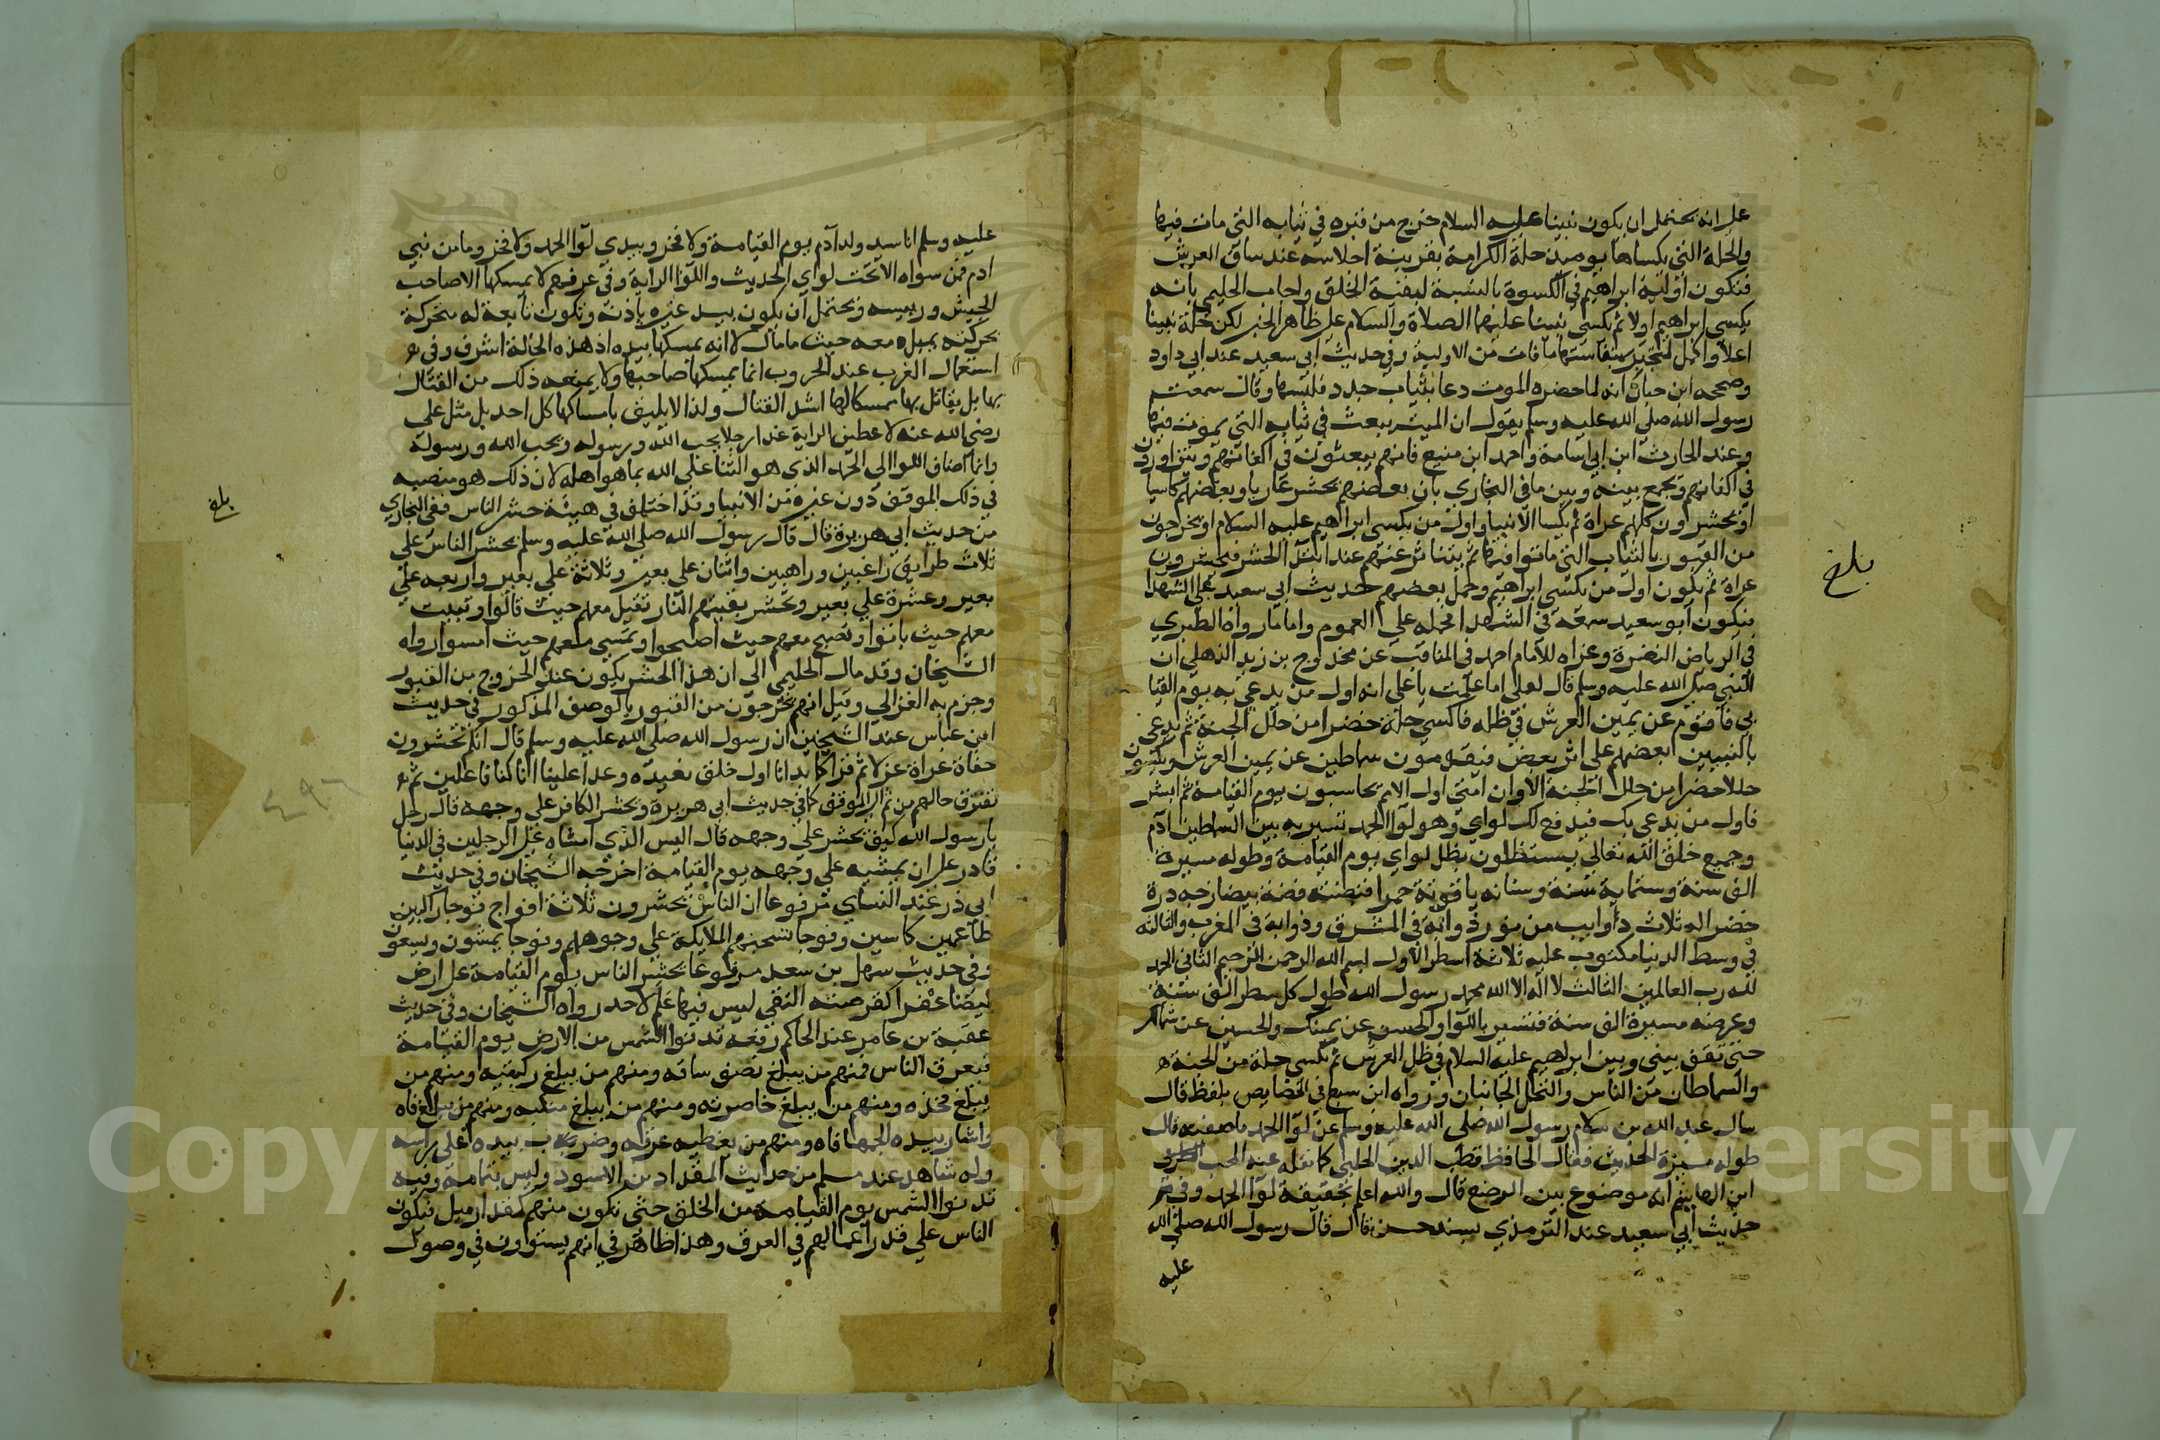 على انه يحتمل ان يكون نبينا عليه السلام خرج من قبره في ثيابه التي مات فيها
والحلة التي يكساها يومئذ حلة الكرامة بقرينة اجلاسه عند ساق العرش
فتكون اولية ابراهيم في الكسوة بالنسبة لبقية الخلق واجاب الحليمي بانه
يكسى ابراهيم اولا ثم يكسى نبينا عليهما الصلاة والسلام على ظاهر الخبر لكن حلة نبينا
اعلا واكمل فتجبر بنفاستها ما فات من الاولية وفي حديث ابي سعيد عند ابي داود
وصححه ابن حبان انه لما حضره الموت دعا بثياب جدد فلبسها وقال سمعت
رسول الله صلى الله عليه وسلم يقول ان الميت يبعث في ثيابه التي يموت فيها
وعند الحارث ابن ابي اسامة واحمد ابن منيع فانهم يبعثون في اكفانهم ويتزاورون
في اكفانهم ويجمع بينه وبين ما في البخاري بان بعضهم يحشر عاريا وبعضهم كاسيا
او يحشرون كلهم عراة ثم يكسا الانبيا واول من يكسى ابراهيم عليه السلام او يخرجون
من القبور بالثياب التي ماتوا فيها ثم تتناثر عنهم عند ابتدا الحشر فيحشرون
عراة ثم يكون اول من يكسى ابراهيم وحمل بعضهم حديث ابي سعيد على الشهدا
فيكون ابو سعيد سمعه في الشهدا فحمله على العموم واما ما رواه الطبري
في الرياض النضرة وعزاه للامام احمد في المناقب عن مخدوج بن زيد الذهلي ان
النبي صلى الله عليه وسلم قال لعلي اما علمت يا علي انه اول من يدعى به يوم القيا
بي فاقوم عن يمين العرش في ظله فاكسى حلة خضرا من حلل الجنة ثم يدعى
بالنبيين بعضهم على اثر بعض فيقومون سماطين عن يمين العرش ويكسون
حللا خضرا من حلل الجنة الا وان امتي اول الامم يحاسبون يوم القيامة ثم ابشر
فاول من يدعى بك فيدفع لك لواي وهو لوا الحمد تسير به بين السماطين ادم
وجميع خلق الله تعالى يستظلون بظل لواي يوم القيامة وطوله مسيرة
الف سنة وستماية سنة وسنانه ياقوتة حمرا قبضته فضة بيضا زجه درة
خضرا له ثلاث ذوايب من نور ذوابة في المشرق وذوابة في المغرب والثالثة
في وسط الدنيا مكتوب عليه ثلاثة اسطر الاول بسم الله الرحمن الرحيم الثاني الحمد
لله رب العالمين الثالث لا اله الا الله محمد رسول الله طول كل سطر الف سنة
وعرضه مسيرة الف سنة فتسير باللوا والحسن عن يمينك والحسين عن شمالك
حتى تقف بيني وبين ابراهيم عليه السلام في ظل العرش ثم تكسى حلة من الجنة
والسماطان من الناس والنخل الجانبان ورواه ابن سبع في الخصايص بلفظ قال
سال عبد الله بن سلام رسول الله صلى الله عليه وسلم عن لوا الحمد ما صفته قال
طوله مسيرة الحديث فقال الحافظ قطب الدين الحلبي كما نقله عنه المحب الطبري
ابن الهايم انه موضوع بين الوضع قال والله اعلم بحقيقة لوا الحمد وفي
حديث ابي سعيد عند الترمذي بسند حسن قال قال رسول الله صلى الله
عليه
بلغ
عليه وسلم انا سيد ولد ادم يوم القيامة ولا فخر وبيدي لوا الحمد ولا فخر وما من نبي
ادم فمن سواه الا تحت لواي الحديث واللوا الراية وفي عرفهم لا يمسكها الا صاحب
الجيش ورييسه ويحتمل ان يكون بيد غيره باذنه وتكون تابعة له متحركة
بحركته يميل معه حيث ما مال لا انه يمسكها بيده اذ هذه الحالة اشرف وفي
استعمال العرب عند الحروب انما يمسكها صاحبها ولا يمنعه ذلك من القتال
بها بل يقاتل بها ممسكا لها اشد القتال ولذا لا يليق بامساكها كل احد بل مثل علي
رضي الله عنه لاعطين الراية غدا رجلا يحب الله ورسوله ويحب الله ورسوله
وانما اضاف اللوا الى الحمد الذي هو الثنا على الله بما هو اهله لان ذلك هو منصبه
في ذلك الموقف دون غيره من الانبيا وقد اختلف في هيئة حشر الناس ففي البخاري
من حديث ابي هريرة قال قال رسول الله صلى الله عليه وسلم يحشر الناس على
ثلاث طرايق راغبين وراهبين واثنان على بعير وثلاثة على بعير واربعة على
بعير وعشرة على بعير وتحشر بقيتهم النار تقيل معهم حيث قالوا وتبيت
معهم حيث باتوا وتصبح معهم حيث اصبحوا وتمسي معهم حيث امسوا رواه
الشيخان وقد مال الحليمي الى ان هذا الحشر يكون عند الخروج من القبور
وجزم به الغزالي وقيل انهم يخرجون من القبور بالوصف المذكور في حديث
ابن عباس عند الشيخين ان رسول الله صلى الله عليه وسلم قال انكم تحشرون
حفاة عراة غرلا ثم قرا كما بدانا اول خلق نعيده وعدا علينا انا كنا فاعلين ثم
تفترق حالهم من ثم الى الموقف كما في حديث ابي هريرة ويحشر الكافر على وجهه قال رجل
يا رسول الله كيف يحشر على وجهه قال اليس الذي امشاه على الرجلين في الدنيا
قادر على ان يمشيه على وجهه يوم القيامة اخرجه الشيخان وفي حديث
ابي ذر عند النساي مرفوعا ان الناس يحشرون ثلاثة افواج فوجا راكبين
طاعمين كاسين وفوجا تسحبهم الملايكة على وجوههم وفوجا يمشون ويسعون
وفي حديث سهل بن سعد مرفوعا يحشر الناس يوم القيامة على ارض
بيضا عفرا كقرصة النقي ليس فيها علم لاحد رواه الشيخان وفي حديث
عقبة بن عامر عند الحاكم رفعه تدنوا الشمس من الارض يوم القيامة
فيعرق الناس فمنهم من يبلغ نصف ساقه ومنهم من يبلغ ركبتيه ومنهم من
يبلغ فخذه ومنهم من يبلغ خاصرته ومنهم من يبلغ منكبه ومنهم من يبلغ فاه
واشار بيده الجمها فاه ومنهم من يغطيه عرقه وضرب بيده على راسه
وله شاهد عند مسلم من حديث المقداد بن الاسود وليس بتمامه وفيه
تدنوا الشمس يوم القيامة من الخلق حتى تكون منهم كمقدار ميل فيكون
الناس على قدر اعمالهم في العرق وهذا ظاهر في انهم يستوون في وصول
بلغ
٤٩٦
Copyright © King Saud University